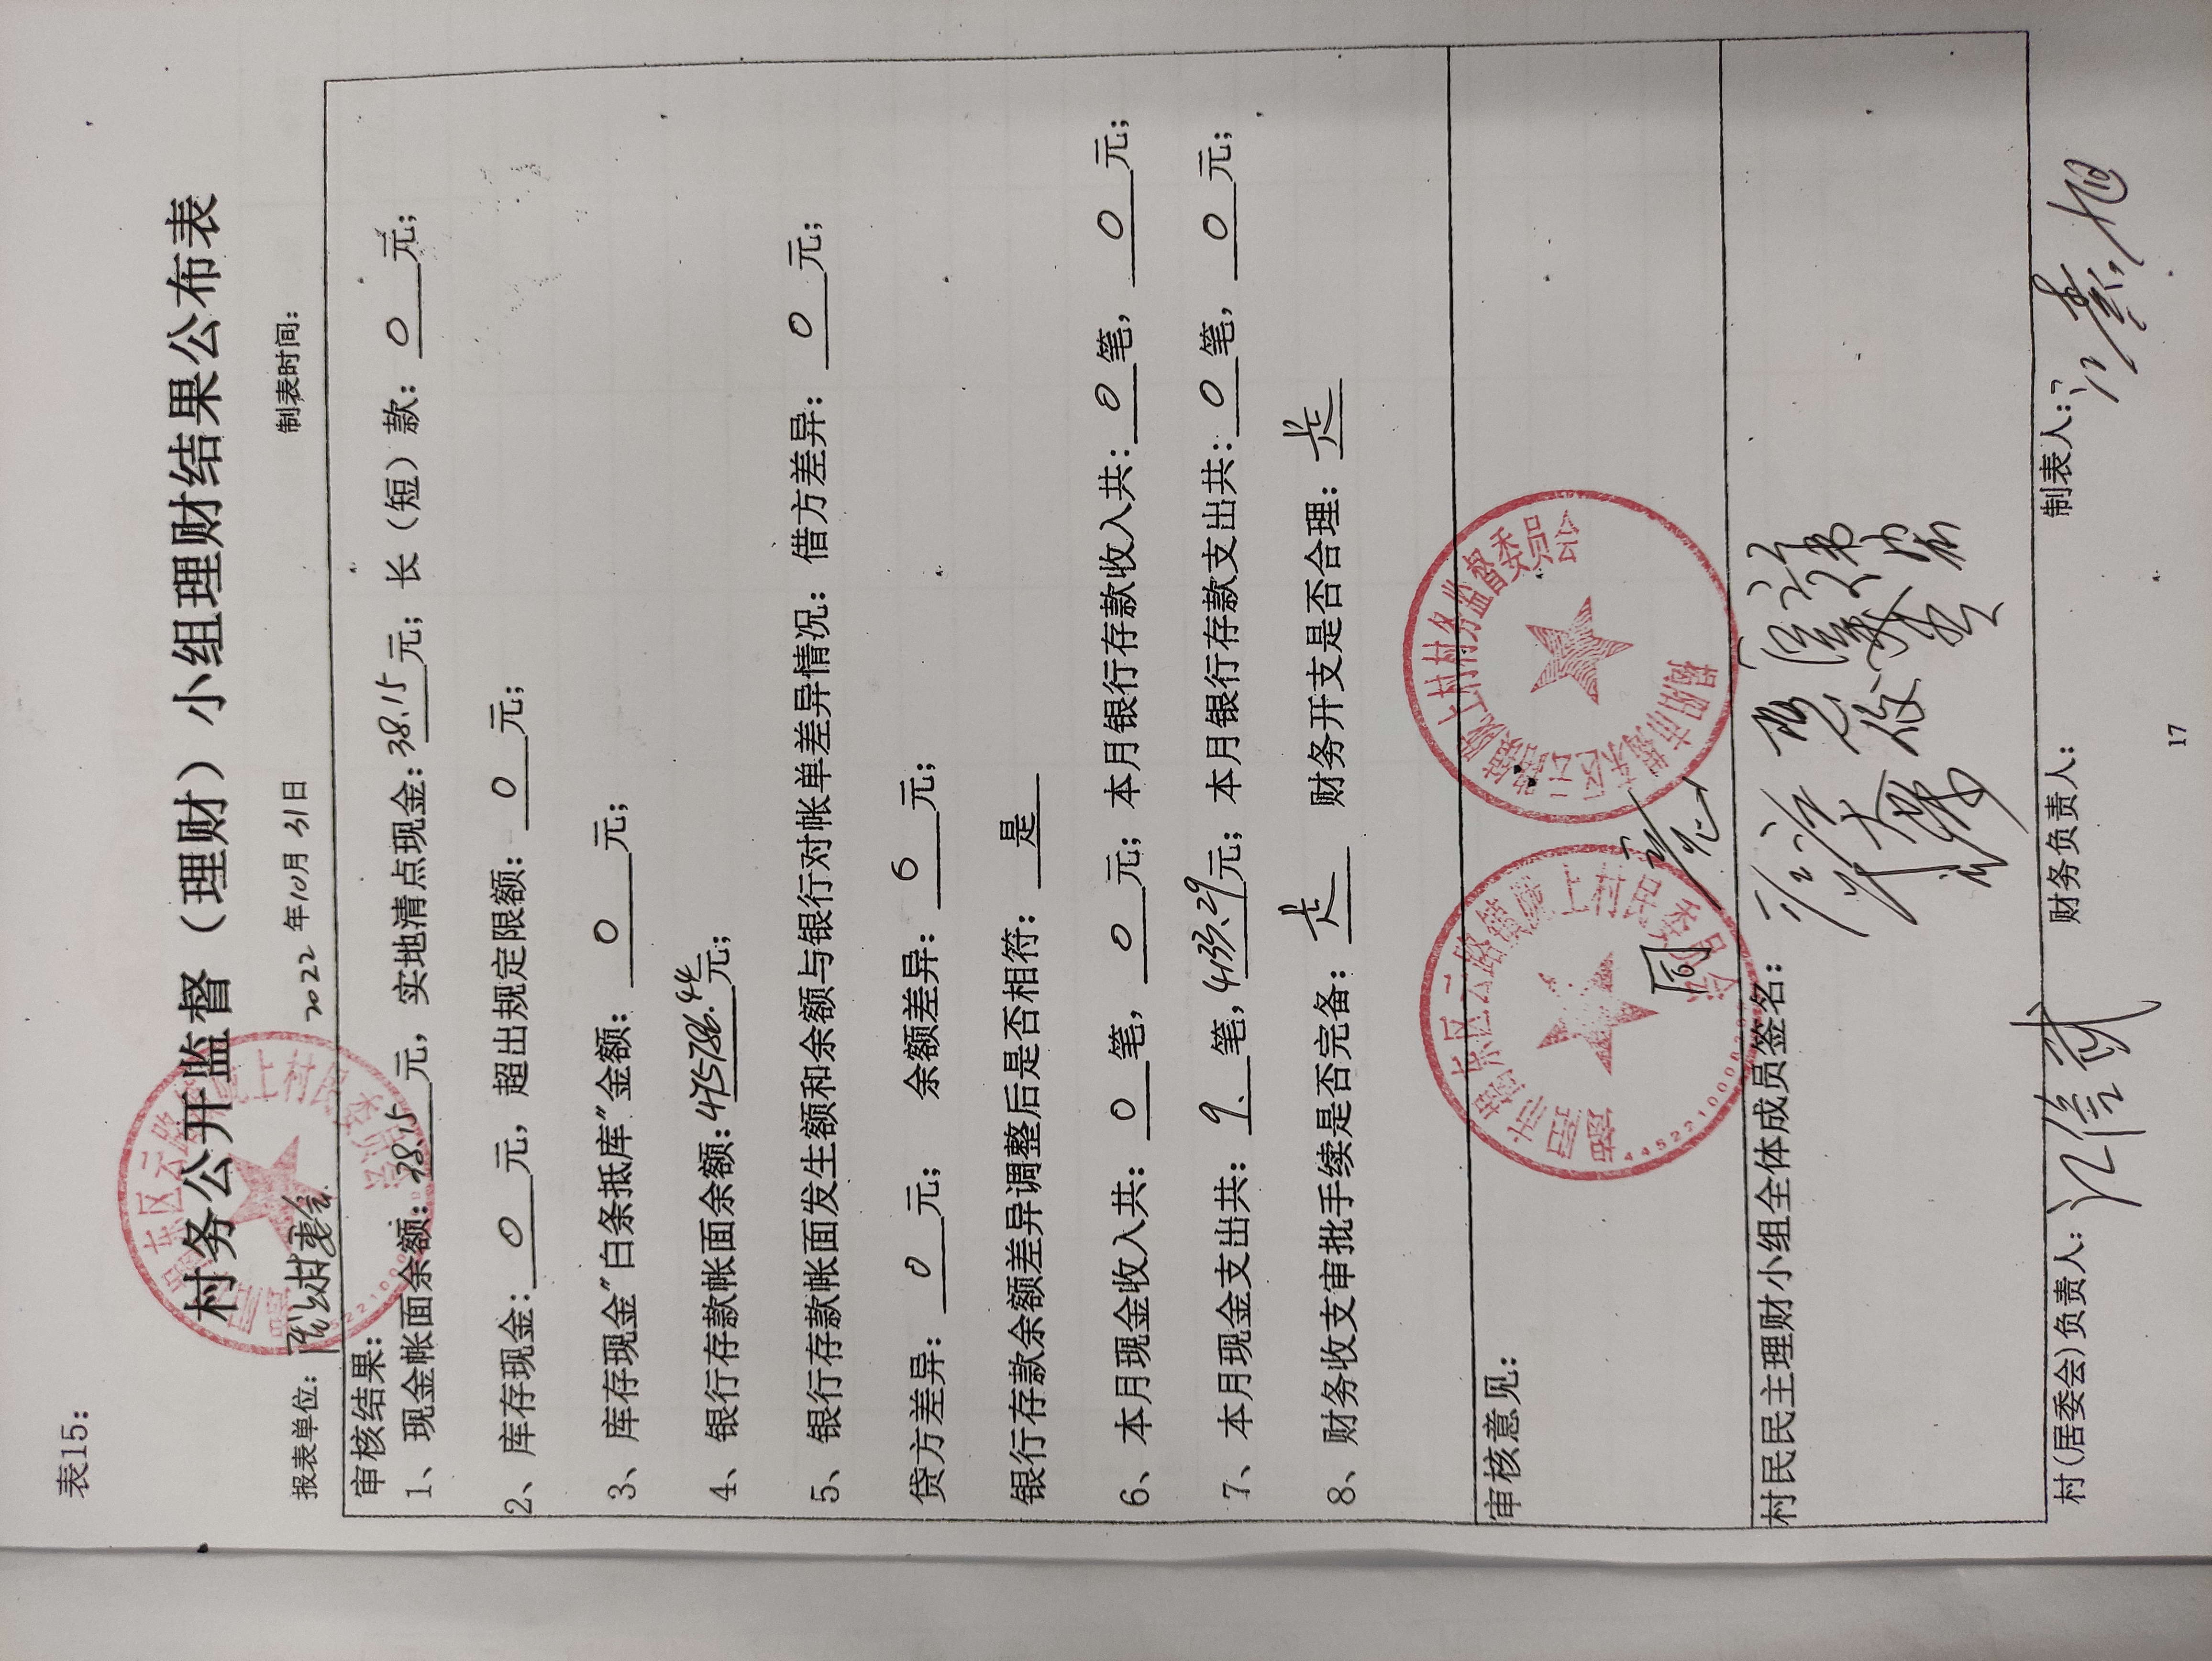 表15：
村务公开监督（理财）小组理财结果公布表
报表单位： 2022年10月31日 制表时间：
审核结果：
1、现金帐面余额：38.15元，实地清点现金：38.15元；长（短）款：0元；
2、库存现金：0元，超出规定限额：0元；
3、库存现金"白条抵库"金额：0元；
4、银行存款帐面余额：475786.44元；
5、银行存款帐面发生额和余额与银行对帐单差异情况：借方差异：0元；
贷方差异：0元； 余额差异：0元；
银行存款余额差异调整后是否相符：是
6、本月现金收入共：0笔，0元；本月银行存款收入共：0笔，0元；
7、本月现金支出共：9笔，元；本月银行存款支出共：0笔，0元；
8、财务收支审批手续是否完备：是 财务开支是否合理：是
审核意见：同意
村民民主理财小组全体成员签名：
村(居委会)负责人： 财务负责人： 制表人：
17